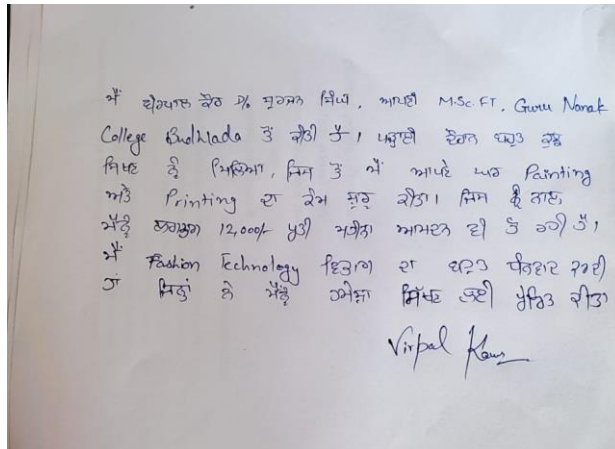 ਮੈਂ ਵੀਰਪਾਲ ਕੌਰ D/o ਸੁਰਜਨ ਸਿੰਘ, ਆਪਣੀ M.Sc. FT, Guru Nanak
College Budhlada ਤੋਂ ਕੀਤੀ ਹੈ। ਪੜ੍ਹਾਈ ਦੌਰਾਨ ਬਹੁਤ ਕੁਝ
ਸਿਖਣ ਨੂੰ ਮਿਲਿਆ, ਜਿਸ ਤੋਂ ਮੈਂ ਆਪਣੇ ਘਰ Painting
ਅਤੇ Printing ਦਾ ਕੰਮ ਸ਼ੁਰੂ ਕੀਤਾ। ਜਿਸ ਨਾਲ
ਮੈਨੂੰ ਲਗਭਗ 12,000/- ਪ੍ਰਤੀ ਮਹੀਨਾ ਆਮਦਨ ਵੀ ਹੋ ਰਹੀ ਹੈ।
ਮੈਂ Fashion Technology ਵਿਭਾਗ ਦਾ ਬਹੁਤ ਧੰਨਵਾਦ ਕਰਦੀ
ਹਾਂ ਜਿਨ੍ਹਾਂ ਨੇ ਮੈਨੂੰ ਹਮੇਸ਼ਾ ਸਿੱਖਣ ਲਈ ਪ੍ਰੇਰਿਤ ਕੀਤਾ
Virpal Kaur